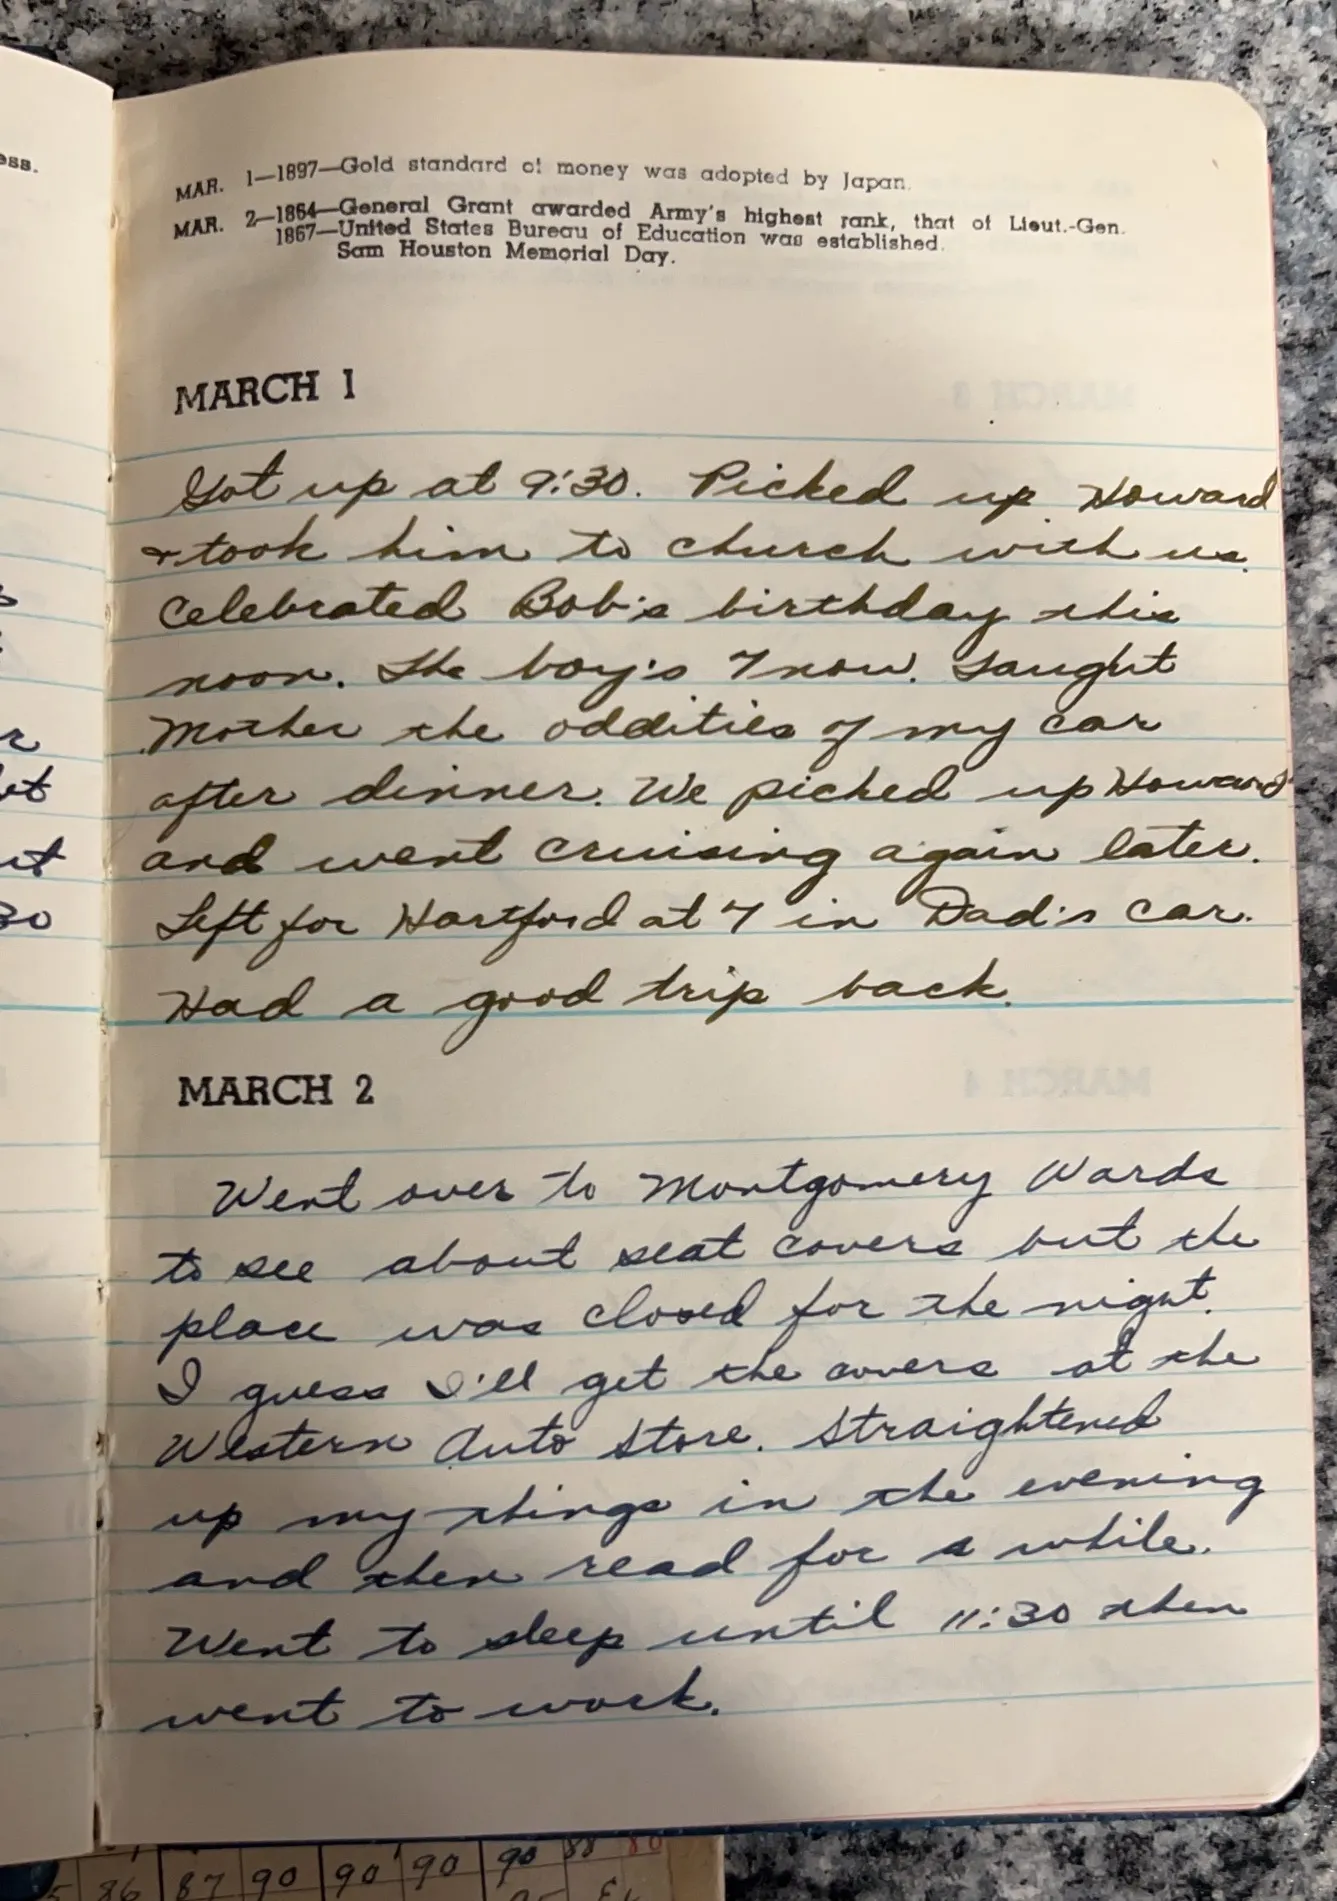 ess.
MAR. 1—1897—Gold standard of money was adopted by Japan.
MAR. 2—1864—General Grant awarded Army's highest rank, that of Lieut.-Gen.
1867—United States Bureau of Education was established.
Sam Houston Memorial Day.
MARCH 1
Got up at 9:30. Picked up Howard
& took him to church with us.
Celebrated Bob's birthday this
noon. The boy's 7 now. Taught
Mother the oddities of my car
after dinner. We picked up Howard
and went cruising again later.
Left for Hartford at 7 in Dad's car.
Had a good trip back.
MARCH 2
Went over to Montgomery Wards
to see about seat covers but the
place was closed for the night.
I guess I'll get the covers at the
Western Auto Store. Straightened
up my things in the evening
and then read for a while.
Went to sleep until 11:30 then
went to work.
86 87 90 90 90 90 88 80